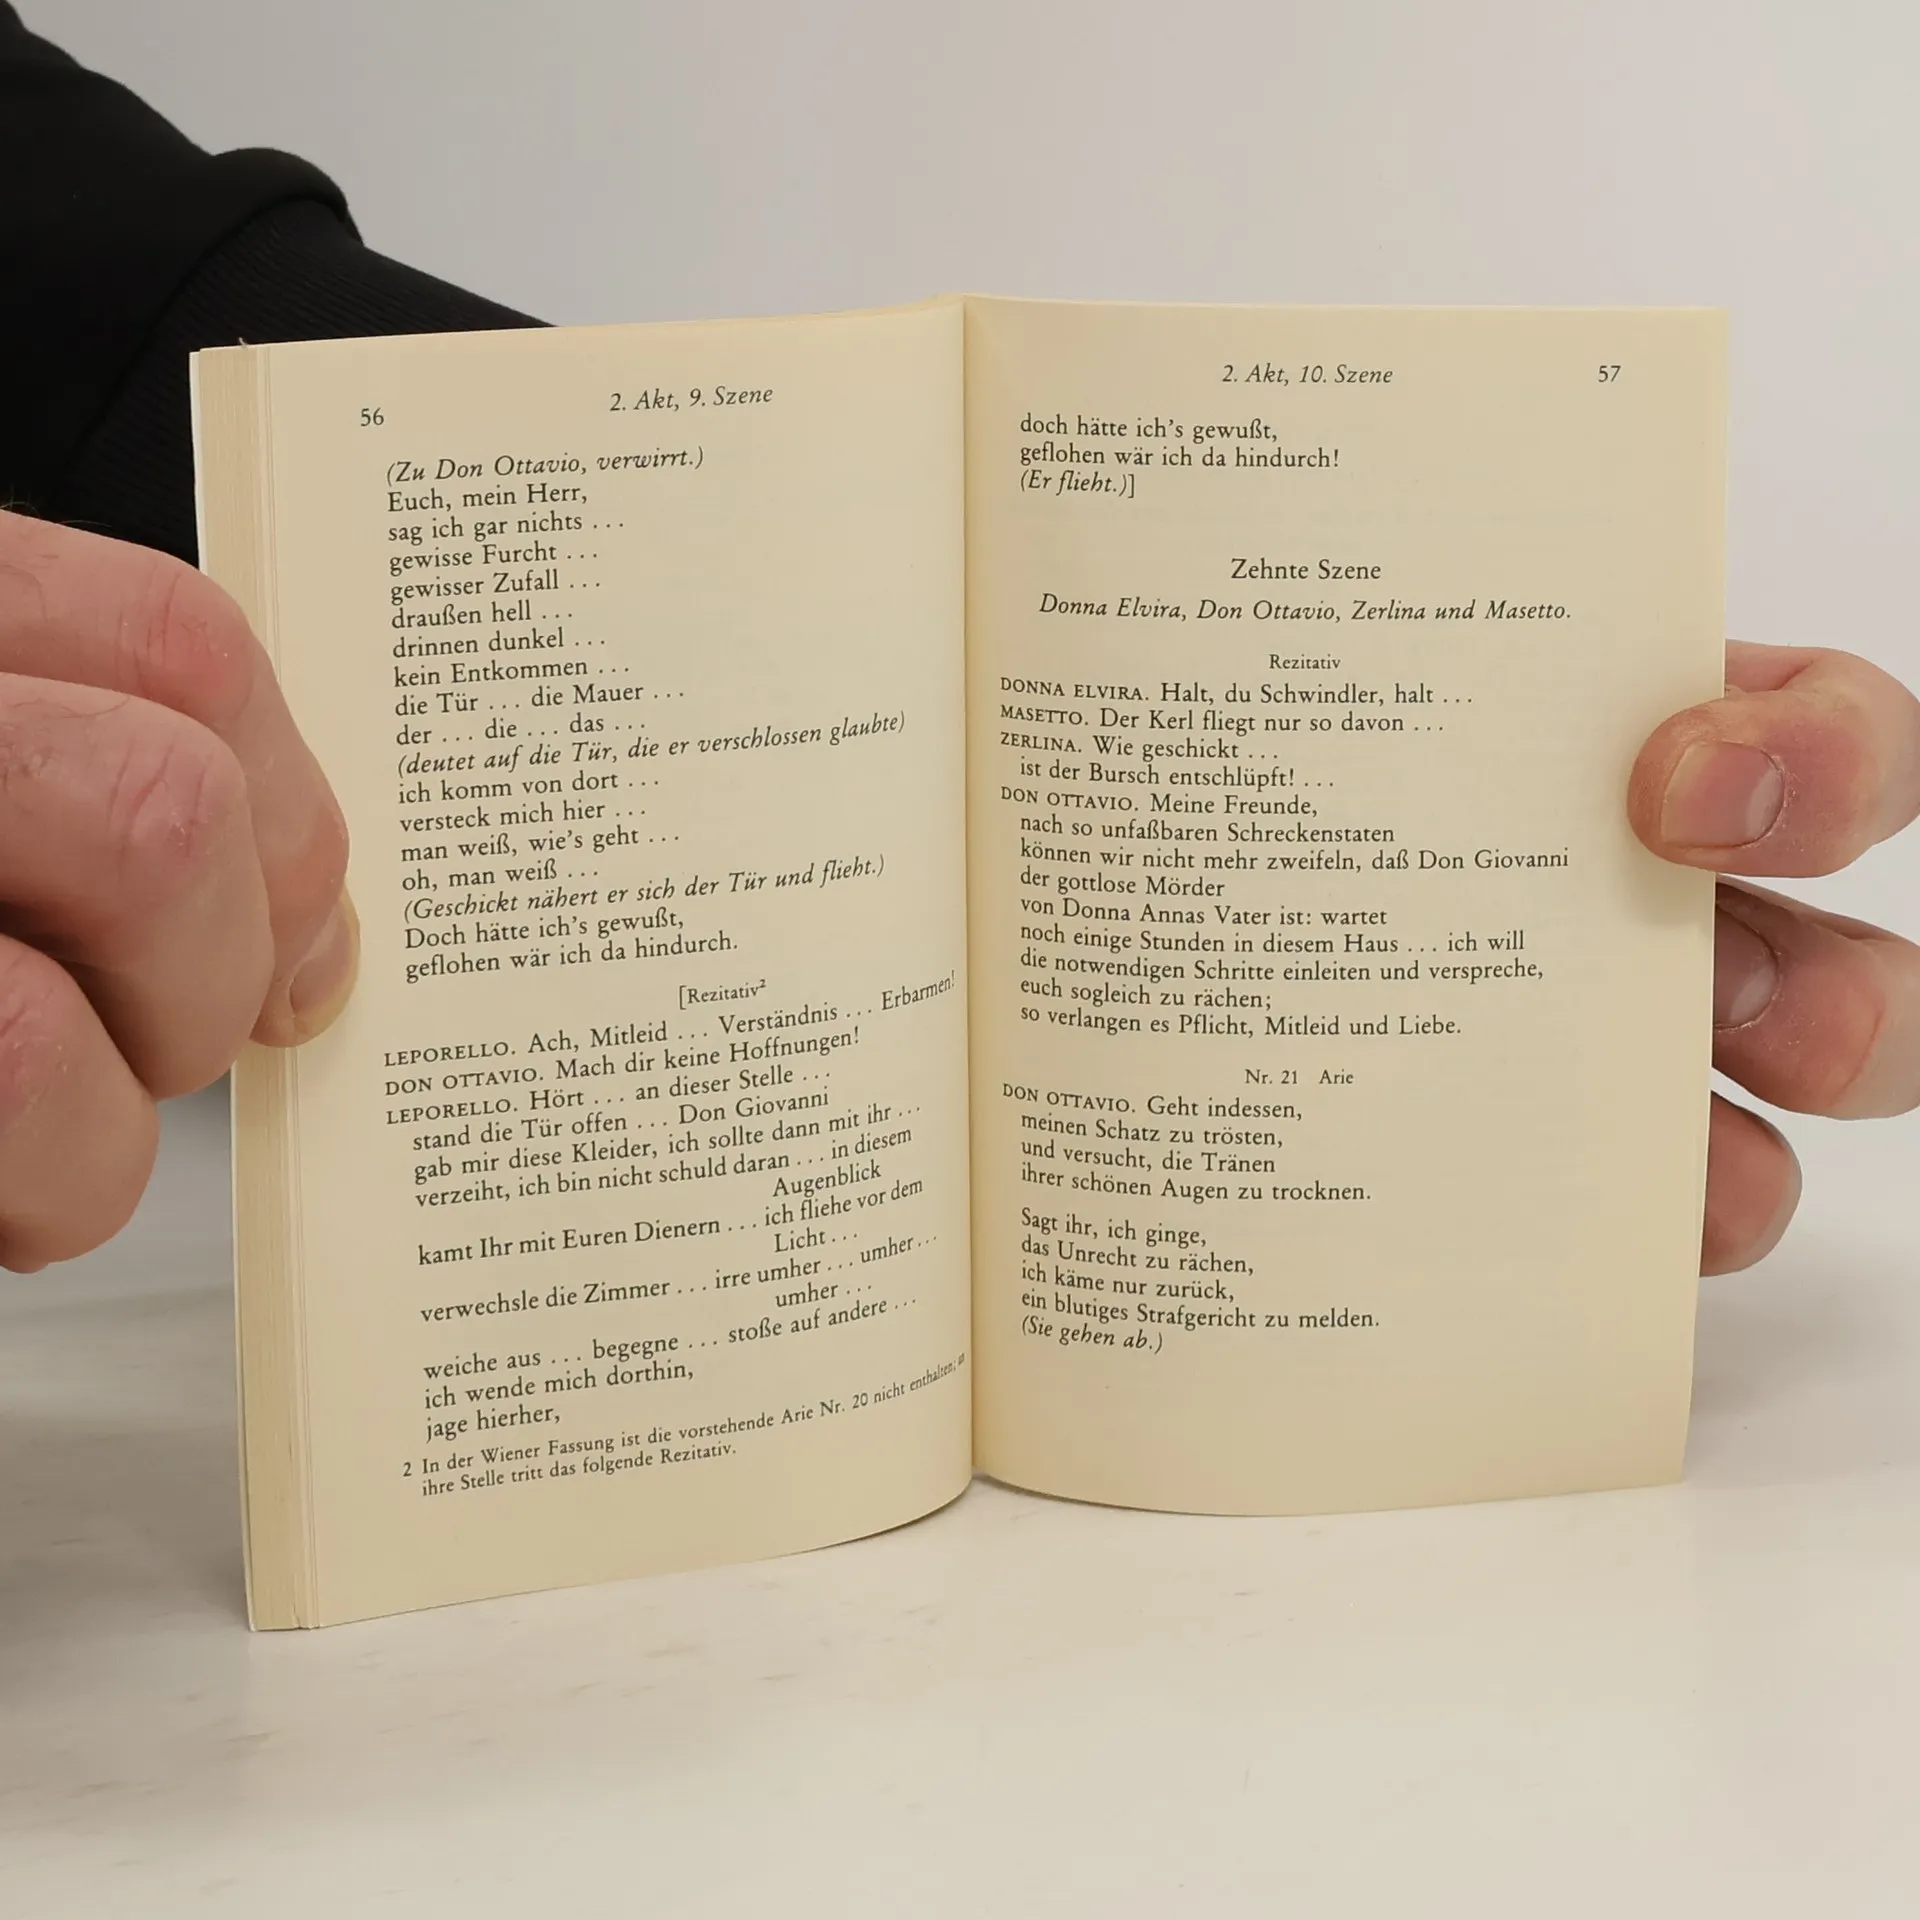 56
2. Akt, 9. Szene
(Zu Don Ottavio, verwirrt.)
Euch, mein Herr,
sag ich gar nichts ...
gewisse Furcht ...
gewisser Zufall ...
draußen hell ...
drinnen dunkel ...
kein Entkommen ...
die Tür ... die Mauer ...
der ... die ... das ...
(deutet auf die Tür, die er verschlossen glaubte)
ich komm von dort ...
versteck mich hier ...
man weiß, wie's geht ...
oh, man weiß ...
(Geschickt nähert er sich der Tür und flieht.)
Doch hätte ich's gewußt,
geflohen wär ich da hindurch.
[Rezitativ²
LEPORELLO. Ach, Mitleid ... Verständnis ... Erbarmen!
DON OTTAVIO. Mach dir keine Hoffnungen!
LEPORELLO. Hört ... an dieser Stelle ...
stand die Tür offen ... Don Giovanni
gab mir diese Kleider, ich sollte dann mit ihr ...
verzeiht, ich bin nicht schuld daran ... in diesem
Augenblick
kamt Ihr mit Euren Dienern ... ich fliehe vor dem
Licht ...
verwechsle die Zimmer ... irre umher ... umher ...
umher ...
weiche aus ... begegne ... stoße auf andere ...
ich wende mich dorthin,
jage hierher,
2 In der Wiener Fassung ist die vorstehende Arie Nr. 20 nicht enthalten; an
ihre Stelle tritt das folgende Rezitativ.
2. Akt, 10. Szene
57
doch hätte ich's gewußt,
geflohen wär ich da hindurch!
(Er flieht.)]
Zehnte Szene
Donna Elvira, Don Ottavio, Zerlina und Masetto.
Rezitativ
DONNA ELVIRA. Halt, du Schwindler, halt ...
MASETTO. Der Kerl fliegt nur so davon ...
ZERLINA. Wie geschickt ...
ist der Bursch entschlüpft! ...
DON OTTAVIO. Meine Freunde,
nach so unfaßbaren Schreckenstaten
können wir nicht mehr zweifeln, daß Don Giovanni
der gottlose Mörder
von Donna Annas Vater ist: wartet
noch einige Stunden in diesem Haus ... ich will
die notwendigen Schritte einleiten und verspreche,
euch sogleich zu rächen;
so verlangen es Pflicht, Mitleid und Liebe.
Nr. 21 Arie
DON OTTAVIO. Geht indessen,
meinen Schatz zu trösten,
und versucht, die Tränen
ihrer schönen Augen zu trocknen.
Sagt ihr, ich ginge,
das Unrecht zu rächen,
ich käme nur zurück,
ein blutiges Strafgericht zu melden.
(Sie gehen ab.)